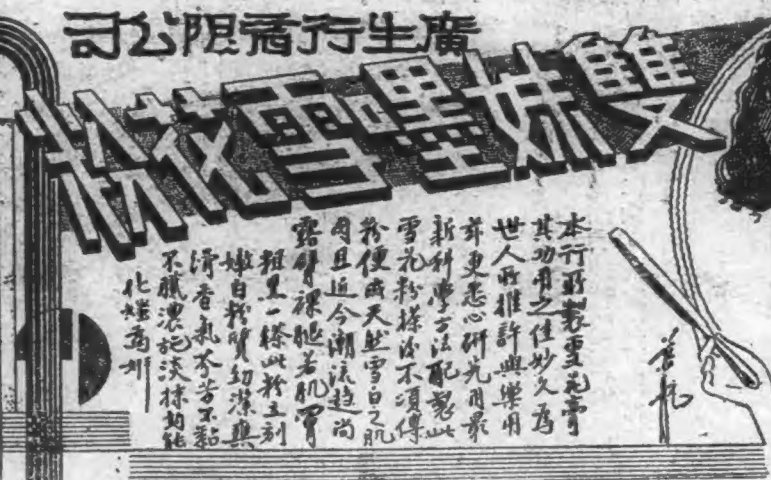 廣生行有限公司
雙妹嚜雪花粉
本行所製雪花膏
其功用之佳妙久為
世人所推許與樂用
茲更悉心研究用最
新科學方法配製此
雪花粉搽後不須傅
粉便成天然雪白之肌
肉且近今潮流趨尚
露臂裸腿若肌膚
粗黑一搽此粉立刻
嫩白粉質幼潔與
滑香氣芬芳不黏
不膩濃施淡抹均能
化媸為妍